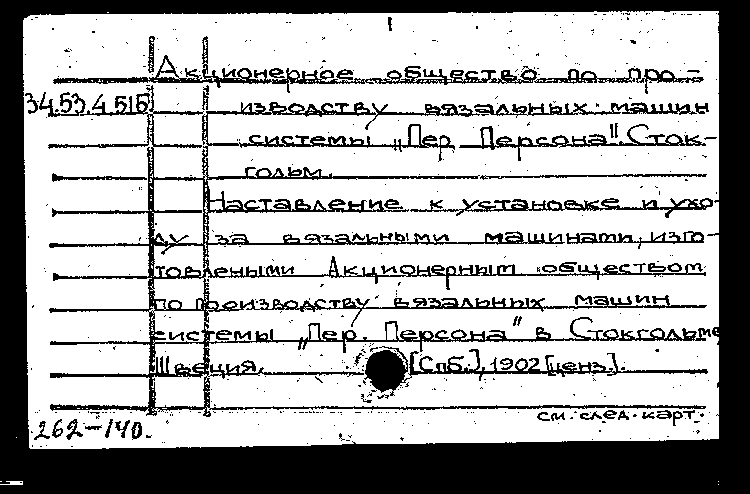 1
Акционерное общество по про-
34.53.4.515 изводству вязальных машин
системы „Пер. Персона". Сток-
гольм.
Наставление к установке и ухо-
ду за вязальными машинами, изго-
товлеными Акционерным обществом
по производству вязальных машин
системы „Пер. Персона" в Стокгольме
Швеция. [Спб.], 1902 [ценз.].
см. след. карт.
262-140.